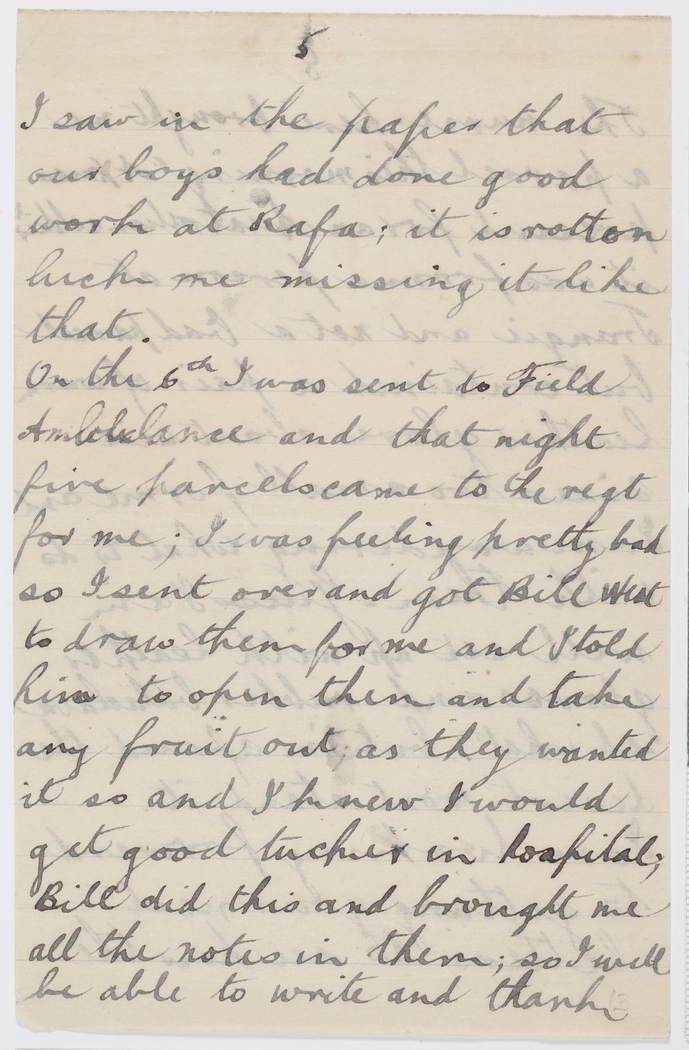 5
I saw in the paper that
our boys had done good
work at Rafa; it is rotton
luck me missing it like
that.
On the 6th I was sent to Field
Ambulance and that night
five parcels came to the regt
for me; I was feeling pretty bad
so I sent over and got Bill West
to draw them for me and I told
him to open them and take
any fruit out, as they wanted
it so and I knew I would
get good tucker in hospital;
Bill did this and brought me
all the notes in them; so I will
be able to write and thank